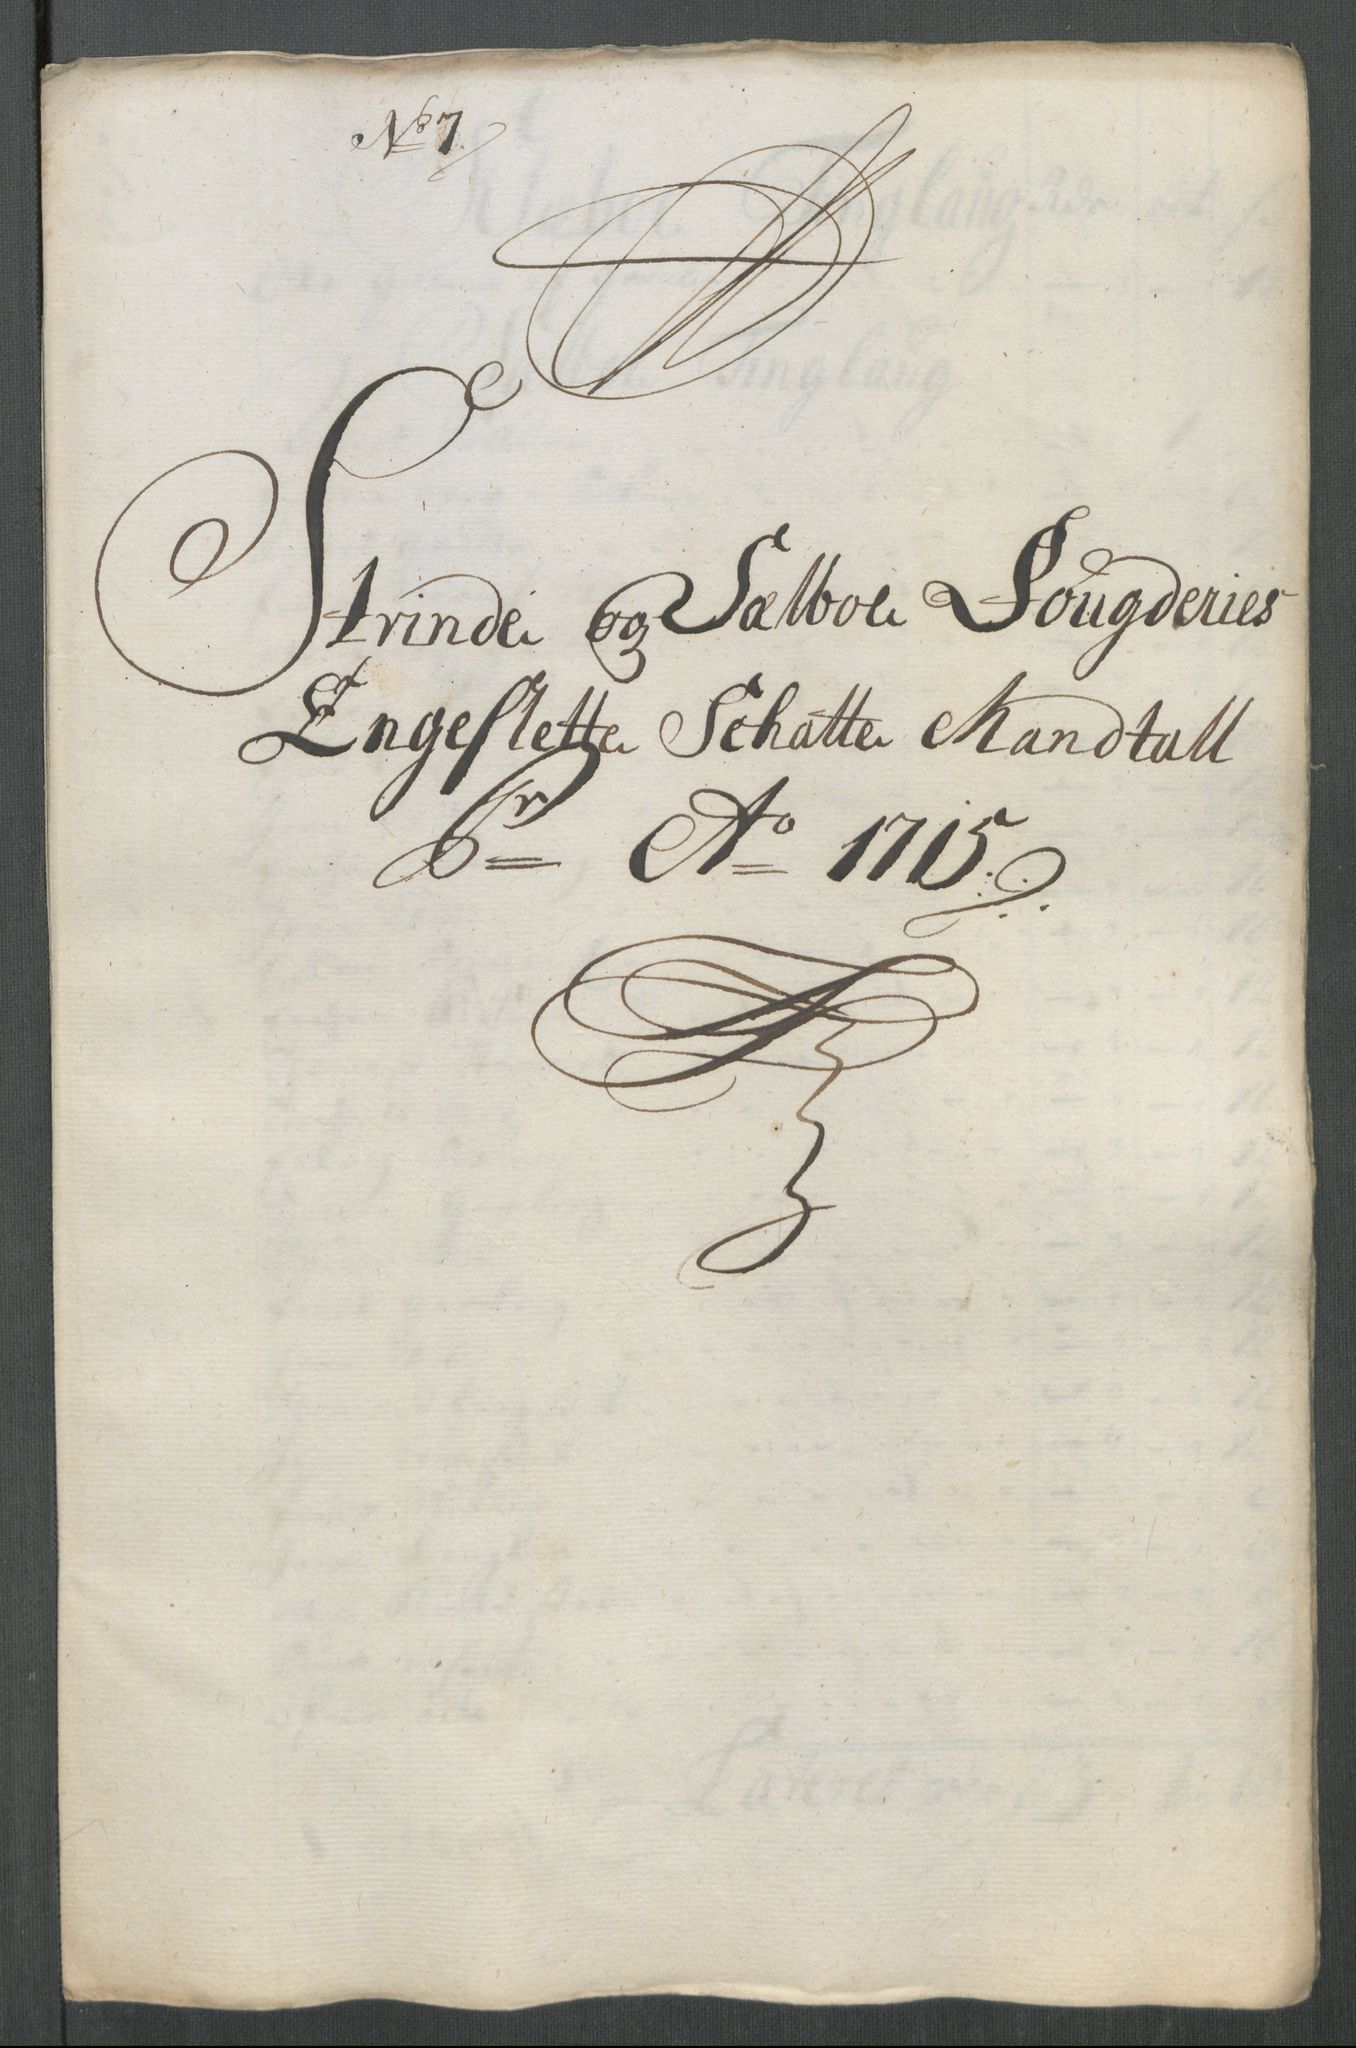 No 7.
Strinde og Sælboe Fougderies
Engeslette Schatte Mandtall
Pr Ao 1715.